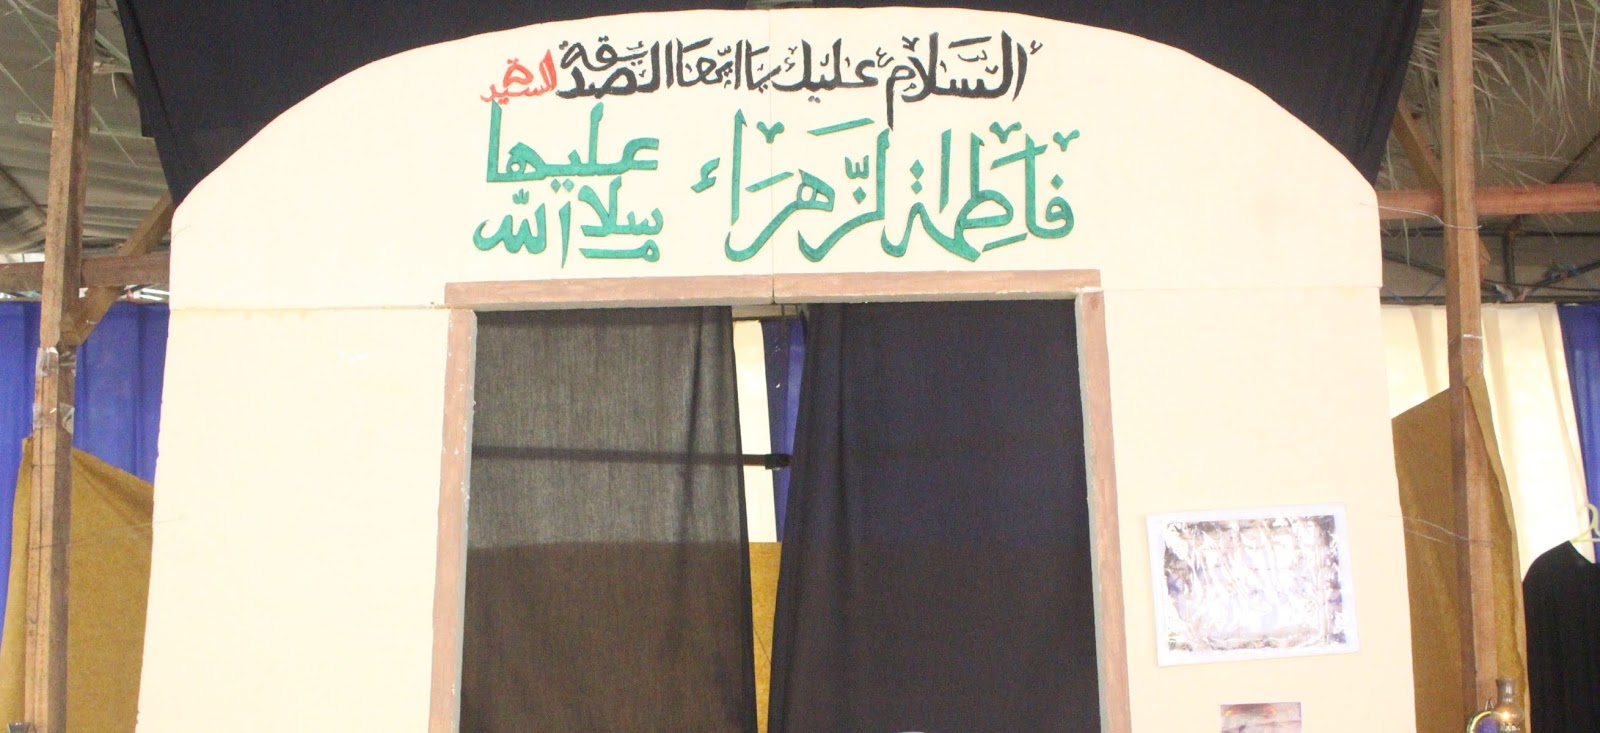 السَّلام عليك يا ايتها الصديقة الشهيدة
فاطمة الزهراء عليها
سلام الله